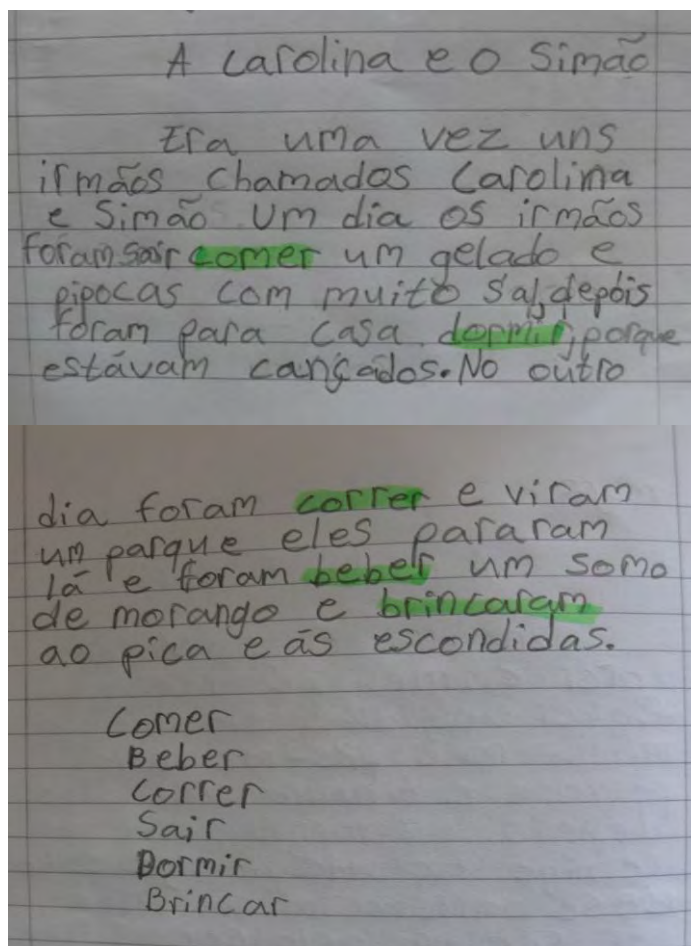 A Carolina e o Simão
Era uma vez uns
irmãos chamados Carolina
e Simão Um dia os irmãos
foram sair comer um gelado e
pipocas com muito sal, depois
foram para casa dormir, porque
estávam cançados. No outro
dia foram correr e viram
um parque eles pararam
lá e foram beber um somo
de morango e brincaram
ao pica e ás escondidas.
Comer
Beber
Correr
Sair
Dormir
Brincar